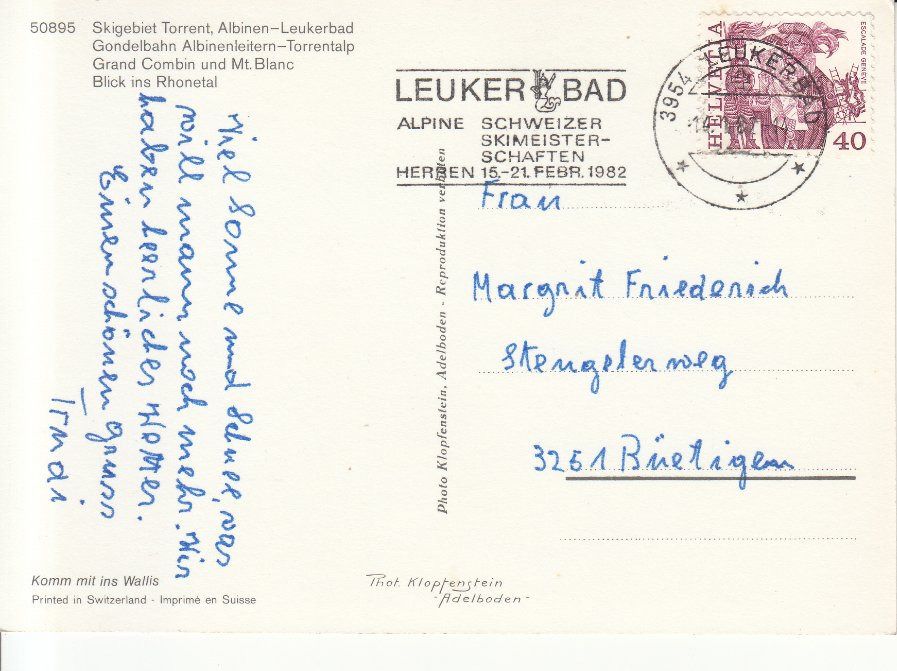 50895 Skigebiet Torrent, Albinen–Leukerbad
Gondelbahn Albinenleitern–Torrentalp
Grand Combin und Mt. Blanc
Blick ins Rhonetal
Viel Sonne und Schnee, was
will mann noch mehr. Wir
haben herrliches Wetter.
Einen schönen Gruss
Irmai
LEUKERBAD
ALPINE SCHWEIZER
SKIMEISTER-
SCHAFTEN
HERREN 15.-21. FEBR. 1982
3954 LEUKERBAD
HELVETIA
ESCALADE GENÈVE
40
Frau
Margrit Friederich
Stengelerweg
3251 Büetigen
Photo Klopfenstein, Adelboden - Reproduktion verboten
Komm mit ins Wallis
Printed in Switzerland - Imprimé en Suisse
Phot. Klopfenstein
-Adelboden-